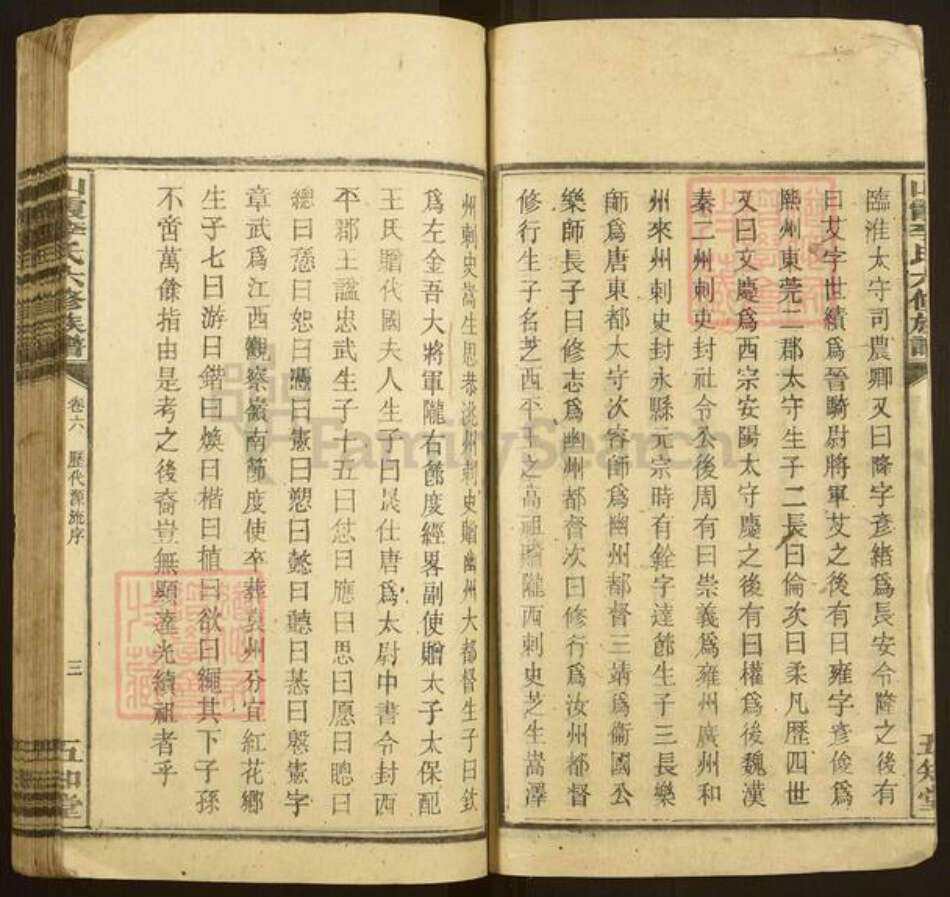 臨淮太守司農卿又曰降字彥緒爲長安令隆之後有
曰艾字世績爲晉騎尉將軍艾之後有曰雍字彥俊爲
熈州東莞二郡太守生子二長曰倫次曰柔凡歷四世
又曰文慶爲西宗安陽太守慶之後有曰權爲後魏漢
秦二州刺史封社令公後周有曰崇義爲雍州廣州和
州來州刺史封永縣元宗時有銓字達節生子三長樂
師爲唐東都太守次客師爲幽州都督三靖爲衞國公
樂師長子曰修志爲幽州都督次曰修行爲汝州都督
修行生子名芝西平王之高祖贈隴西刺史芝生嵩澤
州刺史嵩生思恭洮州刺史贈幽州大都督生子曰欽
爲左金吾大將軍隴右節度經畧副使贈太子太保配
王氏贈代國夫人生子曰晟仕唐爲太尉中書令封西
平郡王諡忠武生子十五曰愿曰應曰思曰愿曰聰曰
總曰愻曰恕曰憑曰憲曰愬曰懿曰聽曰惎曰慇憲字
章武爲江西觀察嶺南節度使卒葬袁州分宜紅花鄉
生子七曰游曰鍇曰煥曰楷曰植曰欲曰繩其下子孫
不啻萬餘指由是考之後裔豈無顯達光績祖者乎
山霞李氏六修族譜
卷六
歷代源流序
三
五知堂
FamilySearch